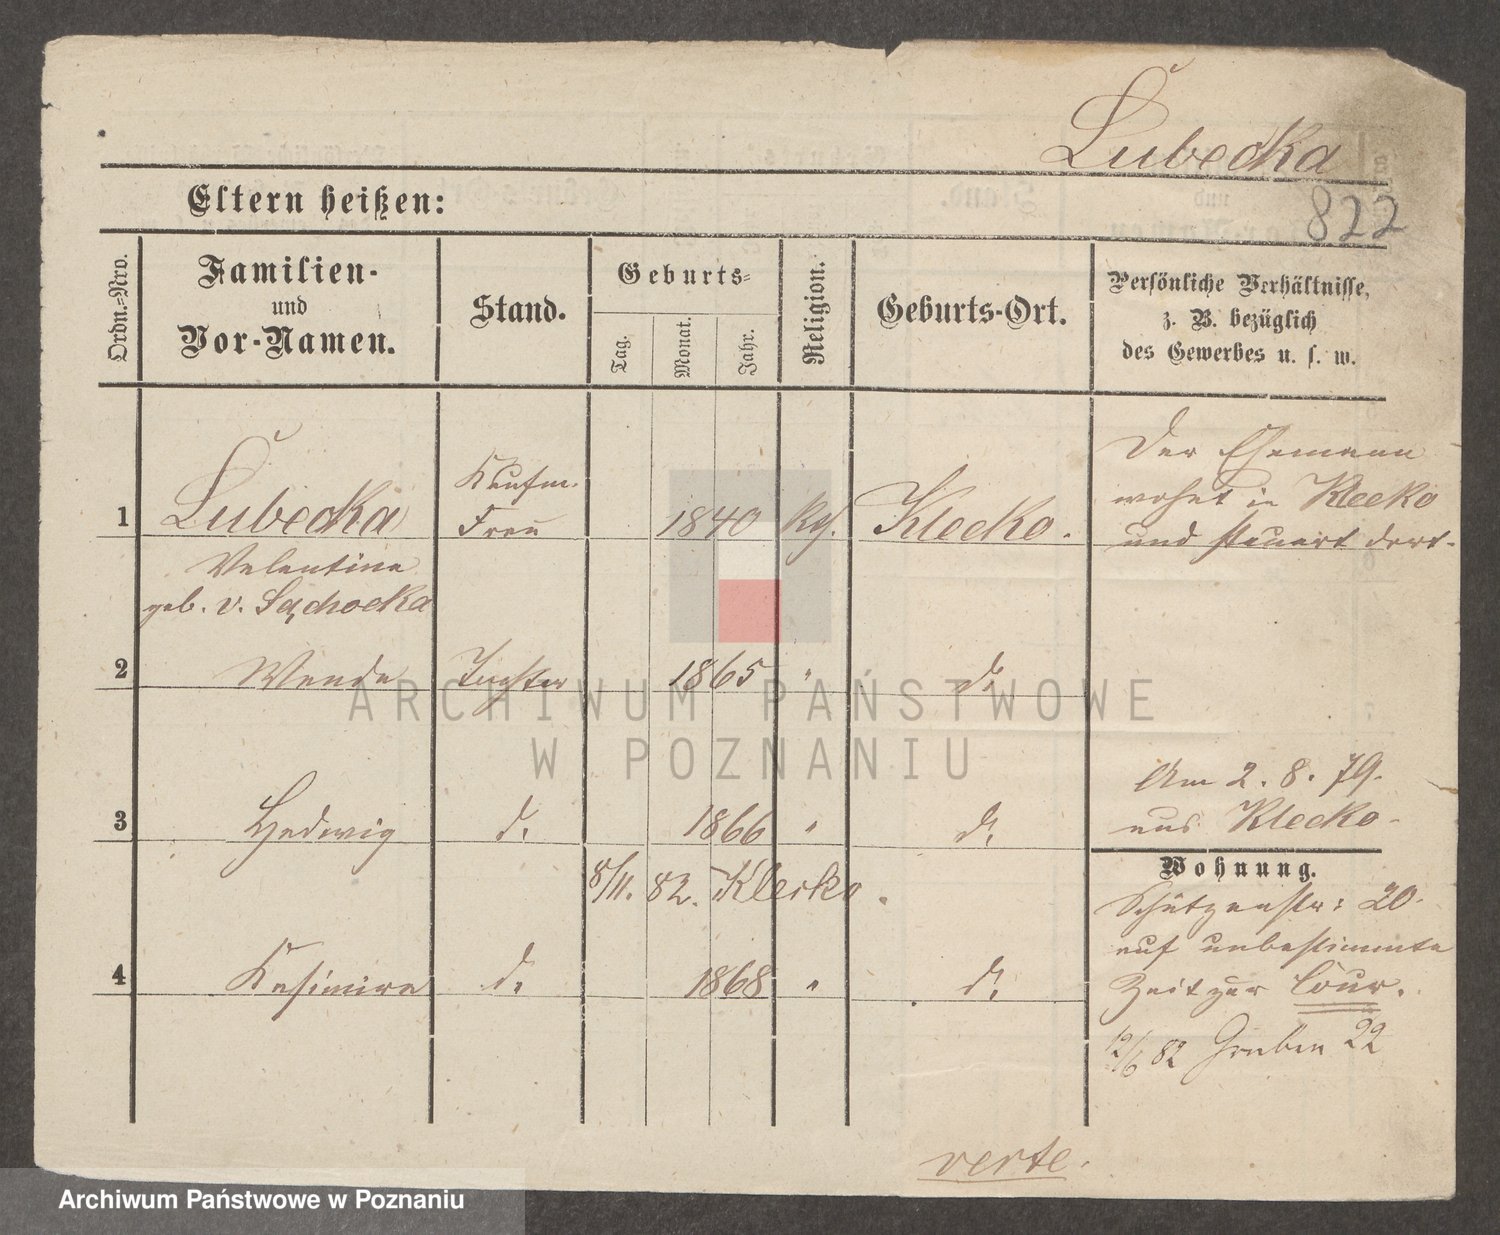 Lubecka
Eltern heißen:
822
Ordn.-Nro.
Familien-
und
Vor-Namen.
Stand.
Geburts-
Tag.
Monat.
Jahr.
Religion.
Geburts-Ort.
Persönliche Verhältnisse,
z. B. bezüglich
des Gewerbes u. s. w.
1
Lubecka
Valentine
geb. v. Sąchocka
Kaufm.
Frau
1840
Kth.
Klecko.
Der Ehemann
wohnt in Klecko
und steuert dort.
2
Wanda
Tochter
1865
"
d.
3
Hedwig
d.
1866
"
d.
Am 2. 8. 79.
aus Klecko.
8/11. 82. Klecko.
4
Kasimira
d.
1868
"
d.
Wohnung.
Schützenstr: 20.
auf unbestimmte
Zeit zur Cour.
12/6 82 Graben 22
verte.
ARCHIWUM PAŃSTWOWE
W POZNANIU
Archiwum Państwowe w Poznaniu